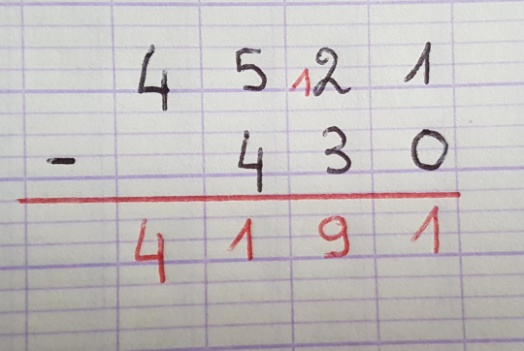 4 5 12 1
- 4 3 0
4 1 9 1